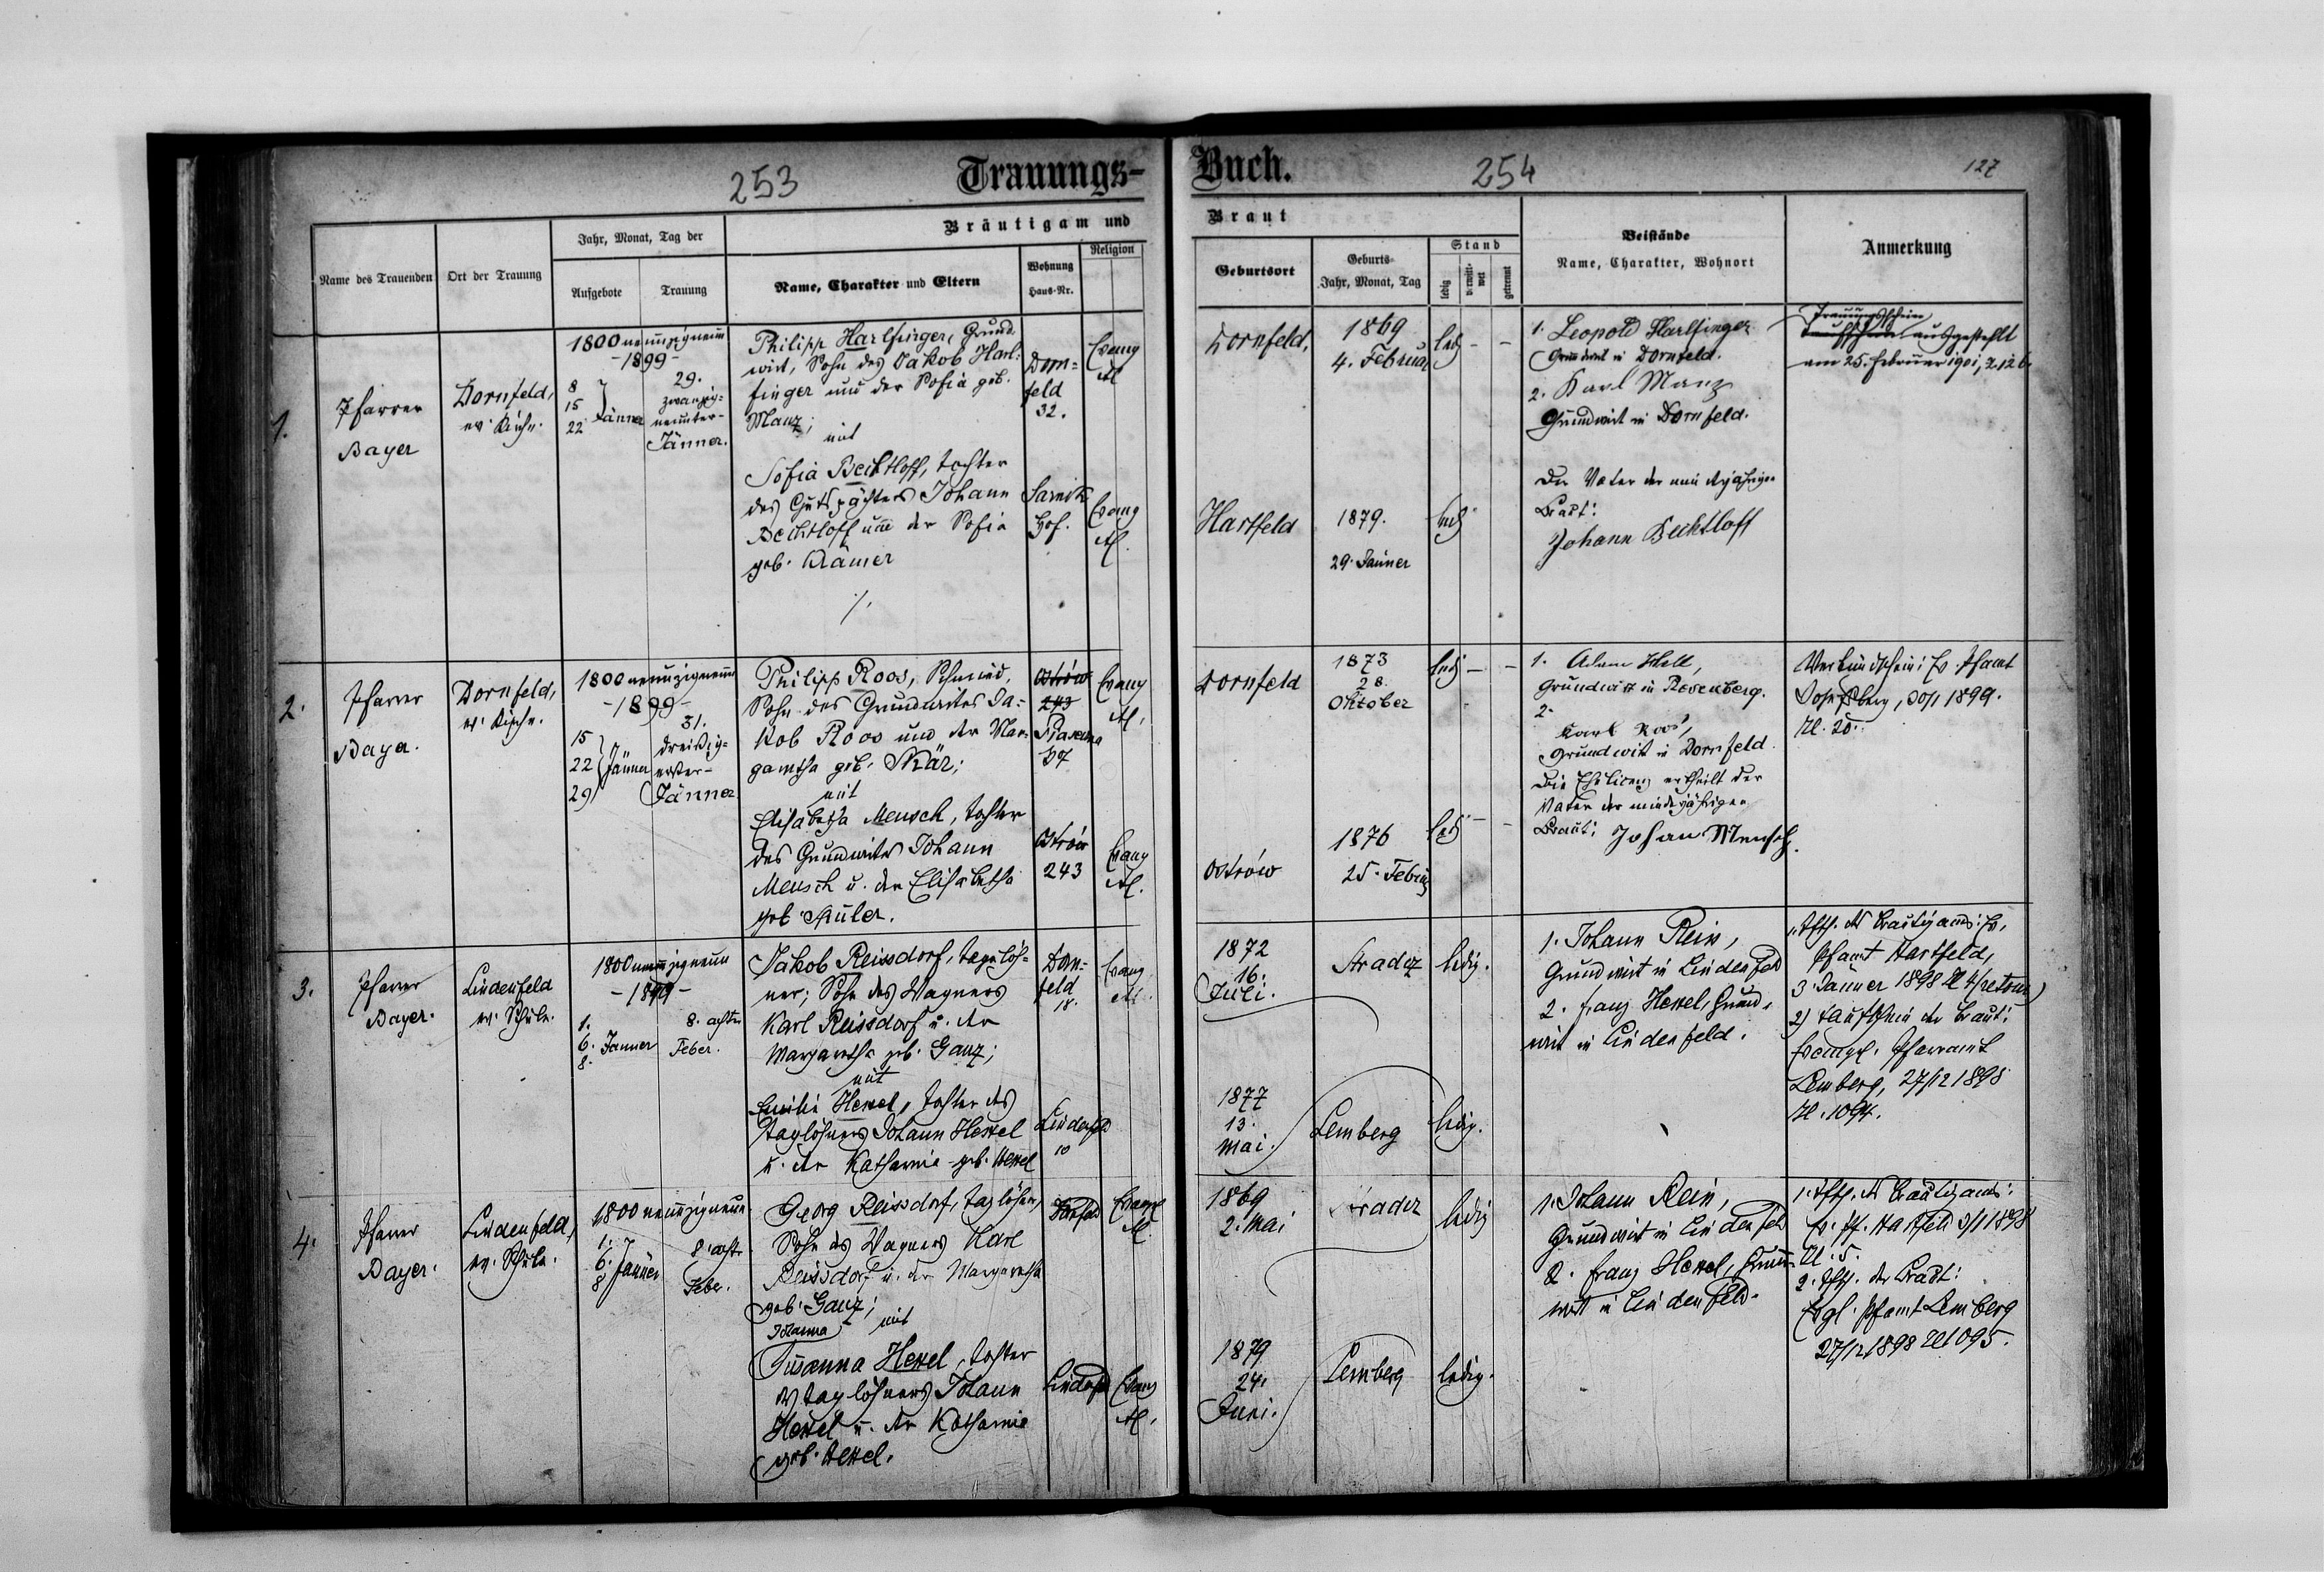 253
Trauungs-
Buch.
254
127
Bräutigam und
Braut
Name des Trauenden
Ort der Trauung
Jahr, Monat, Tag der
Aufgebote
Trauung
Name, Charakter und Eltern
Wohnung
Haus-Nr.
Religion
Geburtsort
Geburts-
Jahr, Monat, Tag
Stand
ledig
verwitt-
wet
getrennt
Beistände
Name, Charakter, Wohnort
Anmerkung
1.
Pfarrer
Bayer
Dornfeld,
ev. Kirche.
1800 neunzigneun
-1899-
8
15
22
Jänner
29.
zwanzig-
neunter-
Jänner.
Philipp Harlfinger, Grund-
wirt, Sohn des Jakob Harl-
finger und der Sofia geb.
Manz;
mit
Sofia Bechtloff, Tochter
des Gutspächters Johann
Bechtloff und der Sofia
geb. Krämer
Dorn-
feld
32.
Evang
Hof.
Evang
Dornfeld,
1869
4. Februar
led
Hartfeld
1879.
29. Jänner
led
1. Leopold Harlfinger
Grundwirt in Dornfeld.
2. Karl Manz
Grundwirt in Dornfeld.
Der Vater der minderjährigen
Braut:
Johann Bechtloff
Trauungsschein
ausgestellt
am 25. Februar 1901, Z. 126.
2.
Pfarrer
Bayer.
Dornfeld,
ev. Kirche.
1800 neunzigneun
-1899-
15
22
29
Jänner
31.
dreißig-
erster-
Jänner
Philipp Roos, Schmied,
Sohn des Grundwirtes Ja-
kob Roos und der Mar-
garetha geb. Skär;
mit
Elisabetha Mensch, Tochter
des Grundwirtes Johann
Mensch u. der Elisabetha
geb. Müler.
Ostrów
243
37
Evang
Ostrów
243
Evang
Dornfeld
1873
28.
Oktober
led
Ostrów
1876
25. Februar
led
1. Adam Hell,
Grundwirt in Rosenberg.
2.
Karl Roos,
Grundwirt in Dornfeld.
Die Ehelicenz ertheilt der
Vater der minderjährigen
Braut: Johan Mensch.
Verkündschein: Ev. Pfamt
Josefsberg, 30/1 1899.
Zl. 20.
3.
Pfarrer
Bayer.
Lindenfeld
ev. Schule.
1800 neunzigneun
-1899-
1.
6.
8.
Jänner
8. achter
Feber.
Jakob Reissdorf, Taglöh-
ner; Sohn des Wagners
Karl Reissdorf u. der
Margaretha geb. Ganz;
mit
Emilie Hexel, Tochter des
Taglöhners Johann Hexel
u. der Katharina geb. Hexel
Dorn-
feld
18.
Evang
Lindenfeld
10
1872
16.
Juli.
Stradcz
ledig.
1877
13.
Mai.
Lemberg
ledig.
1. Johann Rein,
Grundwirt in Lindenfeld
2. Franz Hexel, Grund-
wirt in Lindenfeld.
1. Tfsch. des Bräutigams: Ev.
Pfamt Hartfeld,
3 Jänner 1898 Zl 4 (retour)
2) Taufschein der Braut:
Evangel. Pfarramt
Lemberg, 27/12 1898
Zl. 1094.
4.
Pfarrer
Bayer.
Lindenfeld,
ev. Schule.
1800 neunzigneun
1.
6.
8
Jänner
8. achter
Feber.
Georg Reissdorf, Taglöhner,
Sohn des Wagners Karl
Reissdorf u. der Margaretha
geb. Ganz;
Johanna
mit
Susanna Hexel, Tochter
des Taglöhners Johann
Hexel u. der Katharina
geb. Hexel.
Evang
Lindenfeld
Evang
1869
2. Mai
Stradcz
ledig
1879
24.
Juni.
Lemberg
ledig.
1. Johann Rein,
Grundwirt in Lindenfeld
2. Franz Hexel, Grund-
wirt in Lindenfeld.
1. Tfsch. des Bräutigams:
Ev. Pf. Hartfeld 3/1 1898
Zl. 5.
2. Tfsch. der Braut:
Evgl. Pfamt Lemberg
27/12 1898 Zl 1095.